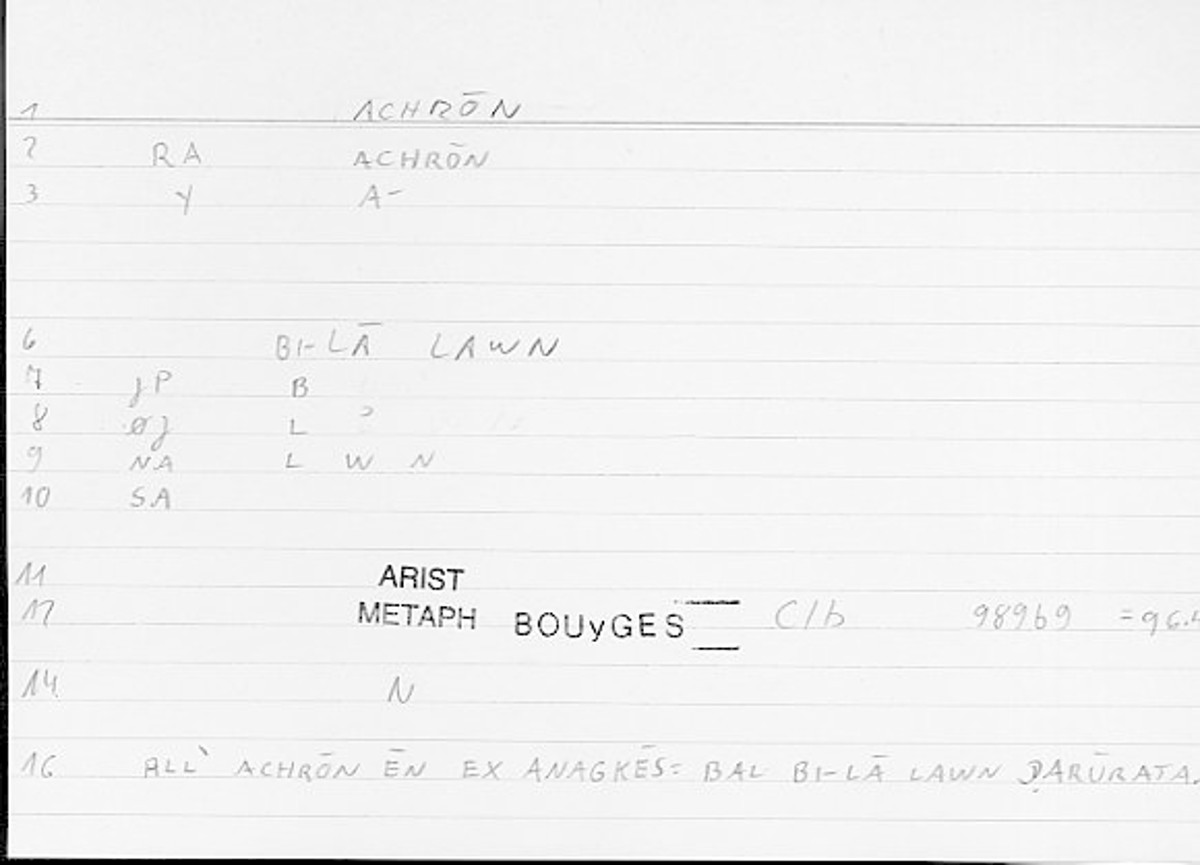 1 ACHRŌN
2 RA ACHRŌN
3 Y A-
6 BI-LĀ LAWN
7 JP B
8 ØJ L ʾ
9 NA L W N
10 SA
11 ARIST
12 METAPH BOUYGES C/b 98969 =96.4
14 N
16 ALL` ACHRŌN ĒN EX ANAGKĒS= BAL BI-LĀ LAWN ḌARŪRATA.